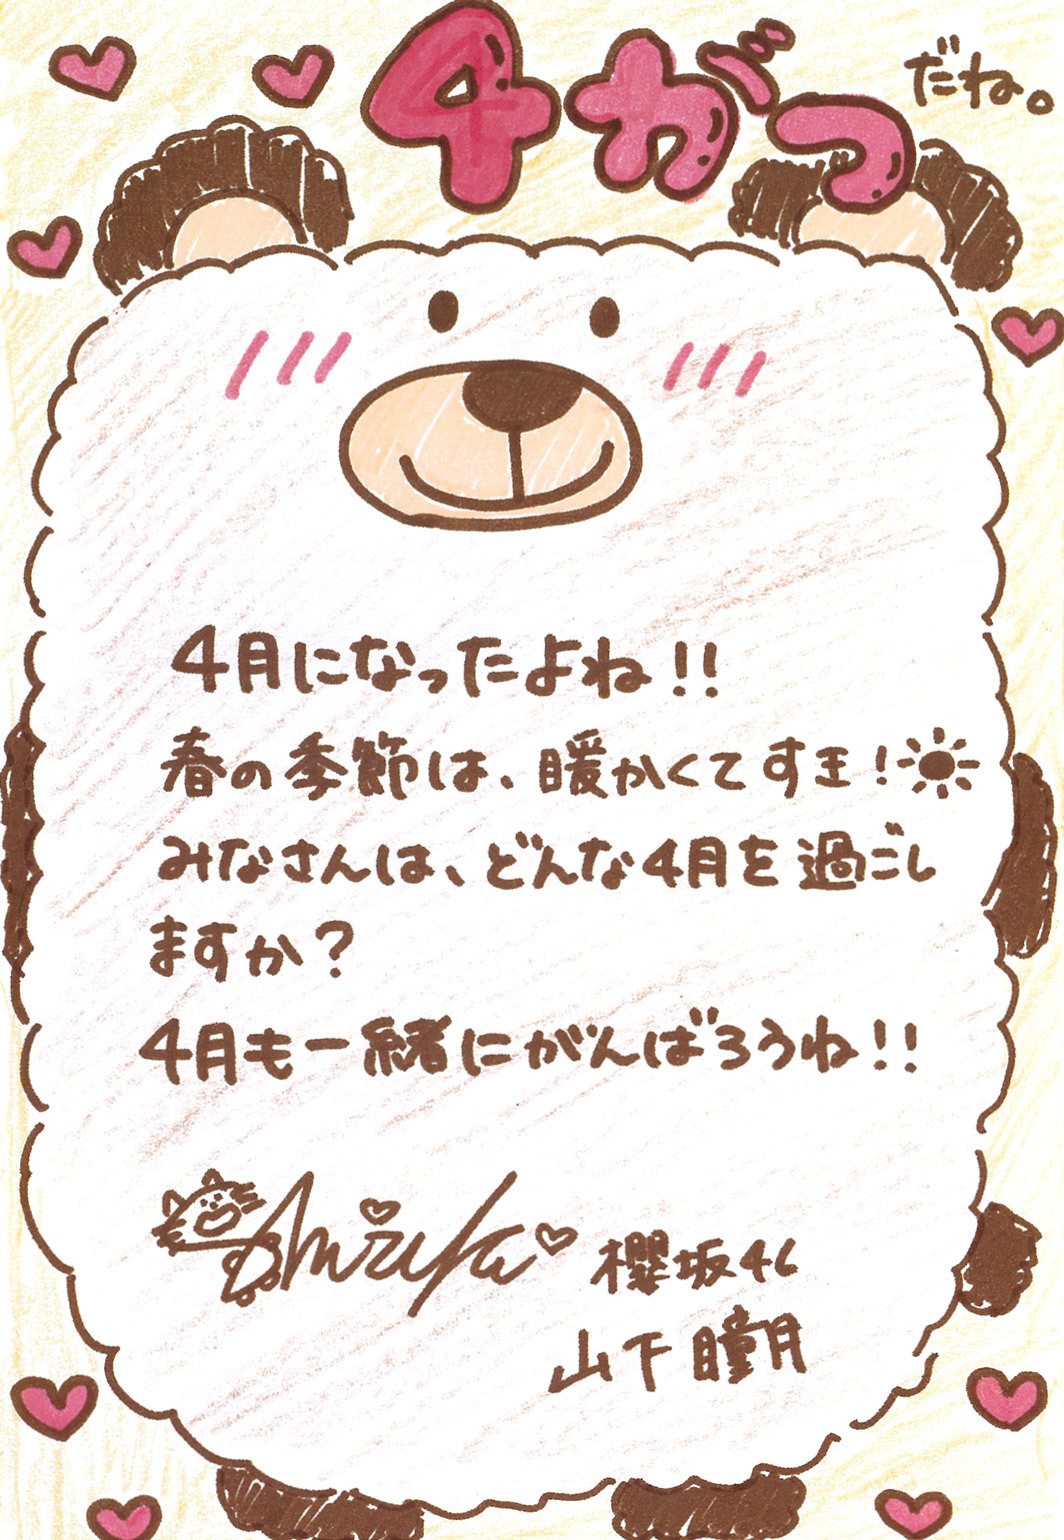 4がつ だね。
4月になったよね!!
春の季節は、暖かくてすき!
みなさんは、どんな4月を過ごし
ますか?
4月も一緒にがんばろうね!!
Shizuka 櫻坂46
山下瞳月